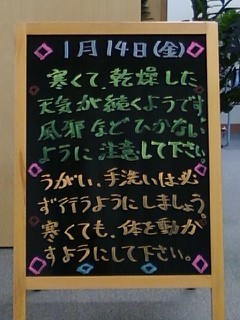 1月14日(金)
寒くて、乾燥した
天気が続くようです。
風邪などひかない
ように注意して下さい。
うがい、手洗いは必
ず行うようにしましょう。
寒くても、体を動か
すようにして下さい。